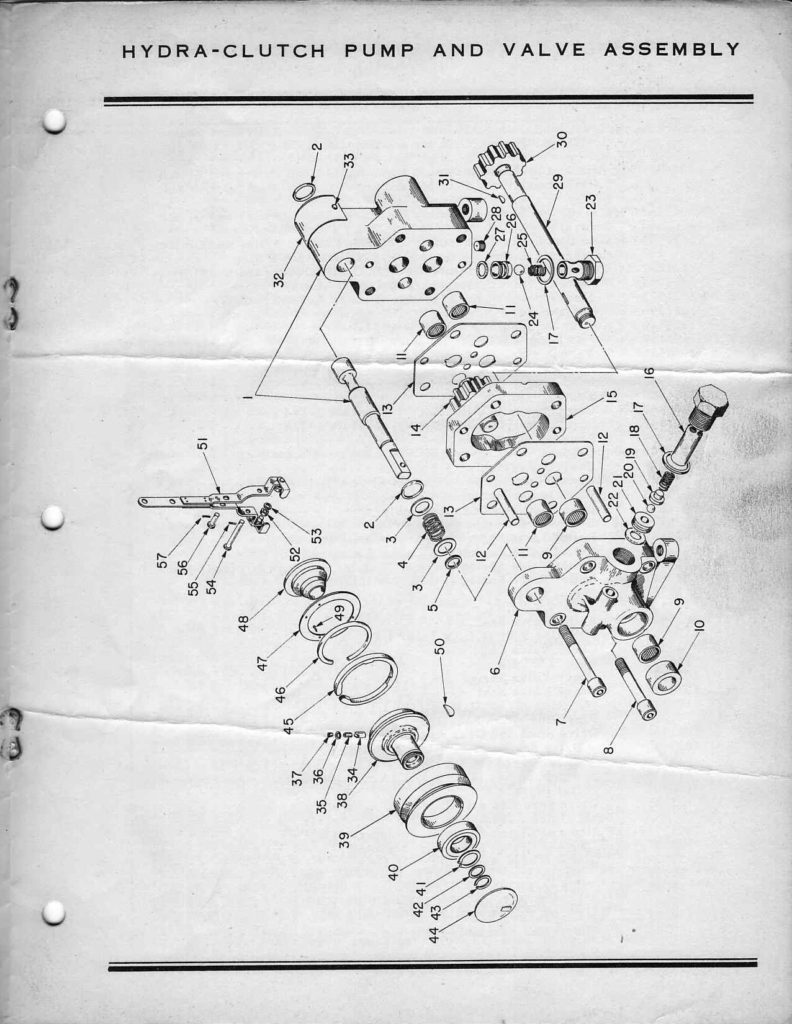 HYDRA-CLUTCH PUMP AND VALVE ASSEMBLY
2
33
30
31
29
32
28
27
26
25
23
24
17
11
11
1
13
14
15
16
17
18
19
20
21
22
12
13
12
11
9
2
3
4
3
5
6
9
10
7
8
51
57
56
55
54
53
52
48
49
47
46
45
50
37
36
35
34
38
39
40
41
42
43
44